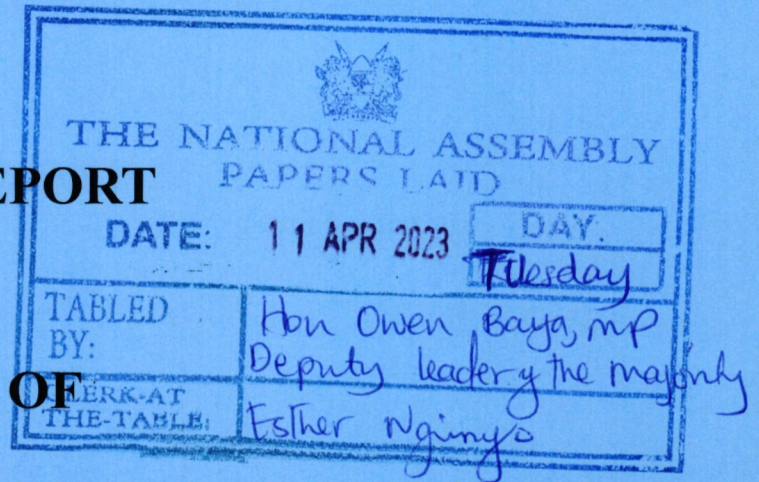 THE NATIONAL ASSEMBLY
PAPERS LAID
EPORT
DATE: 11 APR 2023 DAY:
Tuesday
TABLED BY:
Hon Owen Baya, MP
Deputy leader y the majority
OF
CLERK-AT
THE-TABLE:
Esther